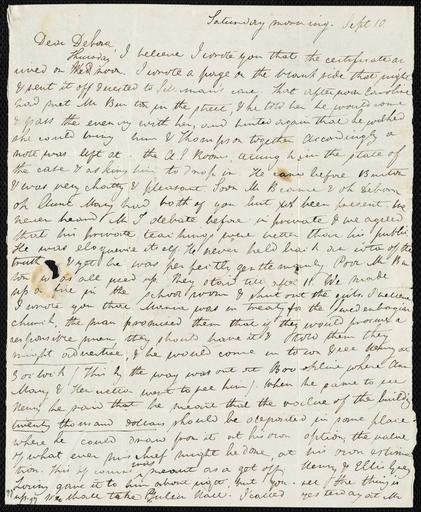 Saturday morning. Sept 10
Dear Debora,
I believe I wrote you that the certificate ar
rived on Thursday noon. I wrote a page on the blank side that night
& sent it off directed to care. That afternoon Caroline
had met Mr Burton in the street, & he told her he would come
& pass the evening with her, and hinted again that he wished
she could bring him & Thompson together. Accordingly a
note was left at the A.S. Rooms, telling him the state of
the case & asking him to drop in. He came before Burton
& was very chatty & pleasant. Soon Mr B came & oh Deborah
oh Aunt Mary had both of you but been present. We
never heard Mr T debate before in private & we agreed
that his private teachings were better than his public.
He was eloquence itself. He never held back an iota of the
truth & yet he was perfectly gentlemanly. Poor Mr Bu
ton was all used up. They staid till after 11. We made
up a fire in the school room & shut out the girls. I believe
I wrote you that was in treaty for the Swedenborgian
church, the man promised them that if they would procure a
responsible man, they should have it & told them they
might advertise, & he would come in town & see Henry at
3 o'clock (By the way he was out at Brookline where Aunt
Mary & Henrietta went to see him). When he came to see
Henry he said that he meant that the value of the building
twenty thousand dollars should be deposited in some place
where he could draw for it at his own option, the value
of what ever mischief might be done, at his own estima
tion. This of course was meant as a get off. Henry & Ellis Gray
Loring gave it to him about right. But you see the thing is
up. We shall take Julien Hall. I called yesterday at Mr